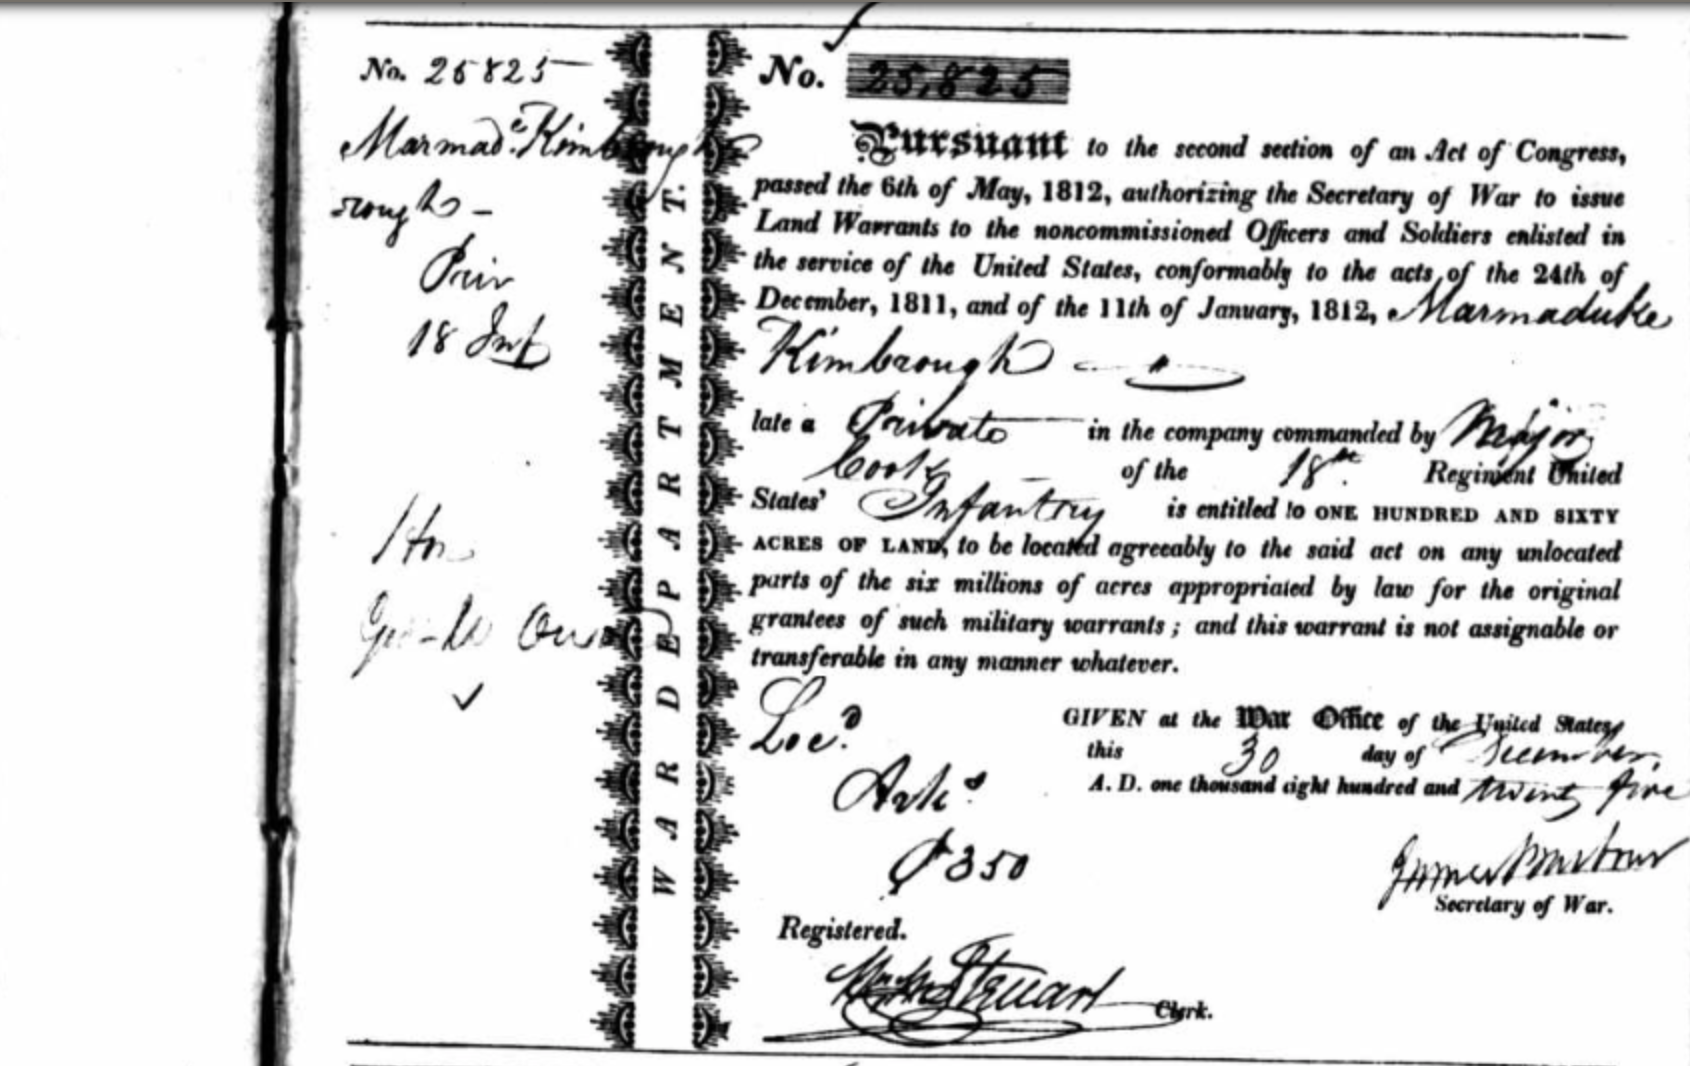 No. 25825
Marmad.e Kimbrough
rough -
Priv
18 Inf
Hon
WAR DEPARTMENT.
No. 25,825
Pursuant to the second section of an Act of Congress,
passed the 6th of May, 1812, authorizing the Secretary of War to issue
Land Warrants to the noncommissioned Officers and Soldiers enlisted in
the service of the United States, conformably to the acts of the 24th of
December, 1811, and of the 11th of January, 1812, Marmaduke
Kimbrough
late a Private in the company commanded by Major
Cook of the 18th Regiment United
States' Infantry is entitled to ONE HUNDRED AND SIXTY
ACRES OF LAND, to be located agreeably to the said act on any unlocated
parts of the six millions of acres appropriated by law for the original
grantees of such military warrants; and this warrant is not assignable or
transferable in any manner whatever.
Loc.d
GIVEN at the War Office of the United States,
this 30 day of December,
A. D. one thousand eight hundred and twenty five
Arks
350
James Barbour
Secretary of War.
Registered.
Steuart Clerk.